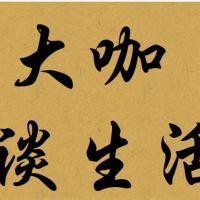 大咖
谈生活